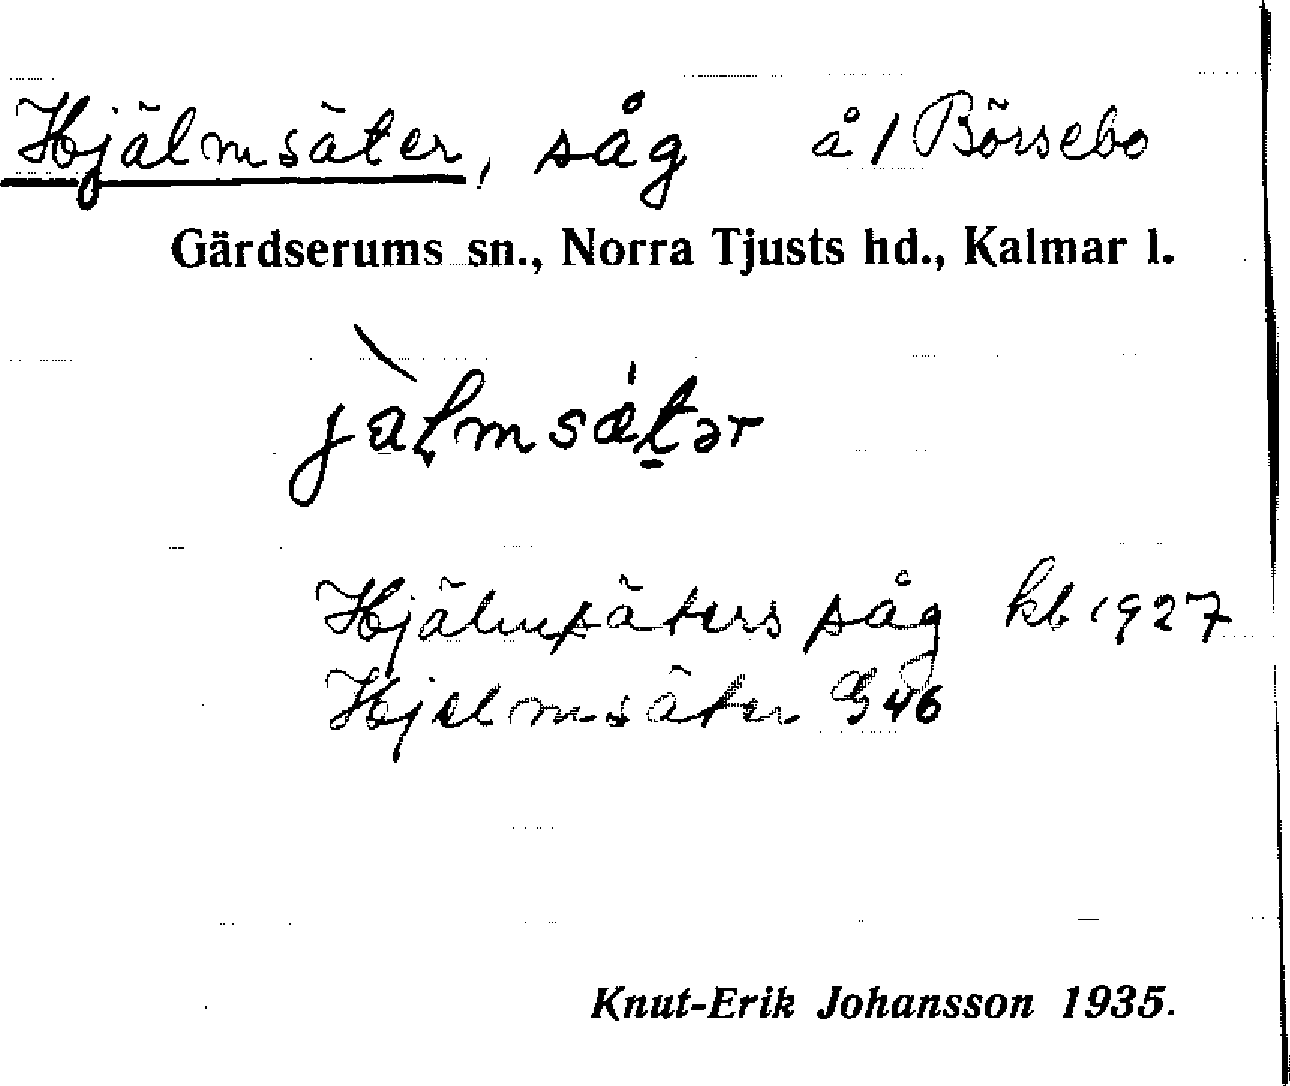 Hjälmsäter, såg å/ Börsebo
Gärdserums sn., Norra Tjusts hd., Kalmar l.
jàlmsætər
Hjälmsäters såg kb 1927
Hjelmsäter G 46
Knut-Erik Johansson 1935.